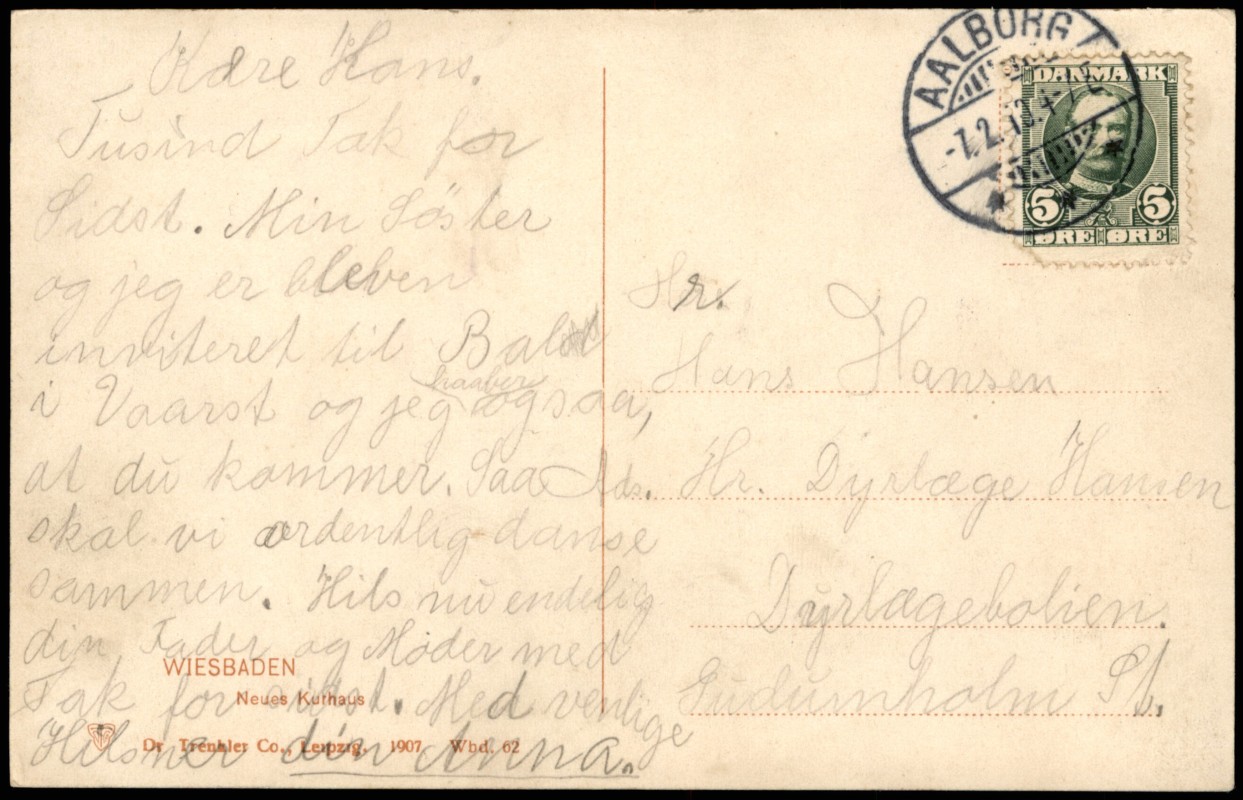 Kære Hans.
Tusind Tak for
Sidst. Min Söster
og jeg er bleven
inviteret til Bal
i Vaarst og jeg haaber ogsaa,
at du kommer. Saa
skal vi ordentlig danse
sammen. Hils nu endelig
din Fader og Moder med
Tak for sidst. Med venlige
Hilsner din Anna.
WIESBADEN
Neues Kurhaus
Dr. Trenkler Co., Leipzig. 1907 Wbd. 62
AALBORG
-7.2.10.4-
DANMARK
5 5
ØRE ØRE
Hr.
Hans Hansen
Ads. Hr. Dyrlæge Hansen
Dyrlægebolien.
Gudumholm St.